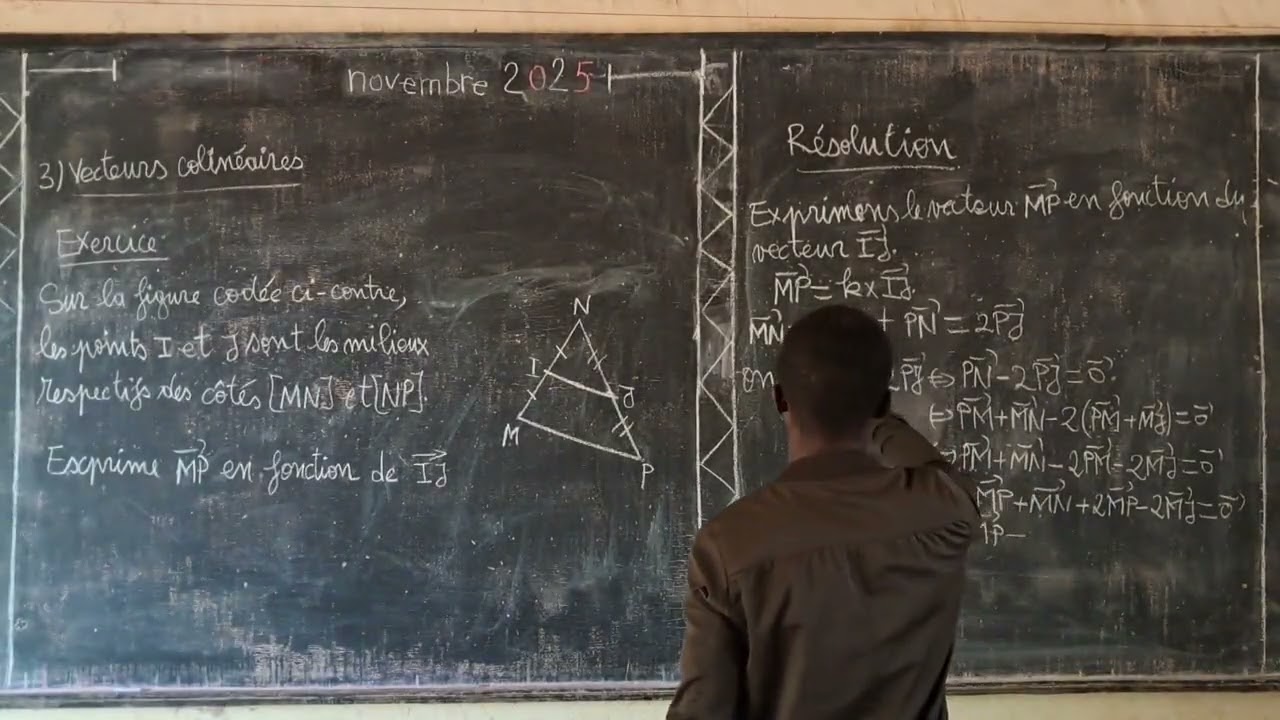 novembre 2025
3) Vecteurs colinéaires
Exercice
Sur la figure codée ci-contre,
les points I et J sont les milieux
respectifs des côtés [MN] et [NP].
Exprime MP⃗ en fonction de IJ⃗
N
I
J
M
P
Résolution
Exprimons le vecteur MP⃗ en fonction du
vecteur IJ⃗.
MP⃗ = k × IJ⃗.
MN⃗ + PN⃗ = 2PJ⃗
on 2PJ⃗ ⇔ PN⃗ - 2PJ⃗ = 0⃗.
⇔ PM⃗ + MN⃗ - 2(PM⃗ + MJ⃗) = 0⃗
PM⃗ + MN⃗ - 2PM⃗ - 2MJ⃗ = 0⃗
MP⃗ + MN⃗ + 2MP⃗ - 2MJ⃗ = 0⃗